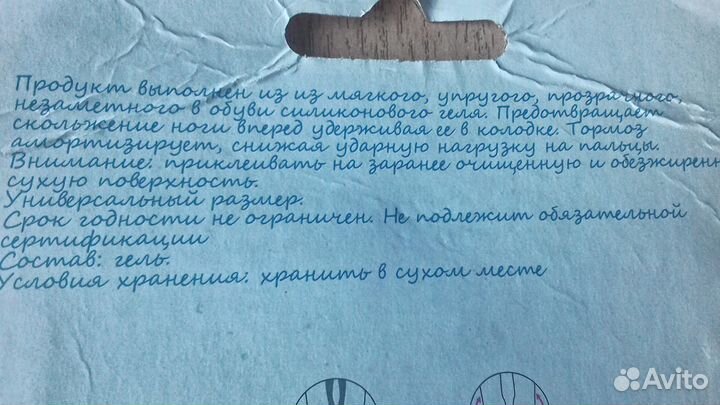 Продукт выполнен из из мягкого, упругого, прозрачного,
незаметного в обуви силиконового геля. Предотвращает
скольжение ноги вперед удерживая ее в колодке. Тормоз
амортизирует, снижая ударную нагрузку на пальцы.
Внимание: приклеивать на заранее очищенную и обезжиренн
сухую поверхность.
Универсальный размер.
Срок годности не ограничен. Не подлежит обязательной
сертификации
Состав: гель.
Условия хранения: хранить в сухом месте
Avito